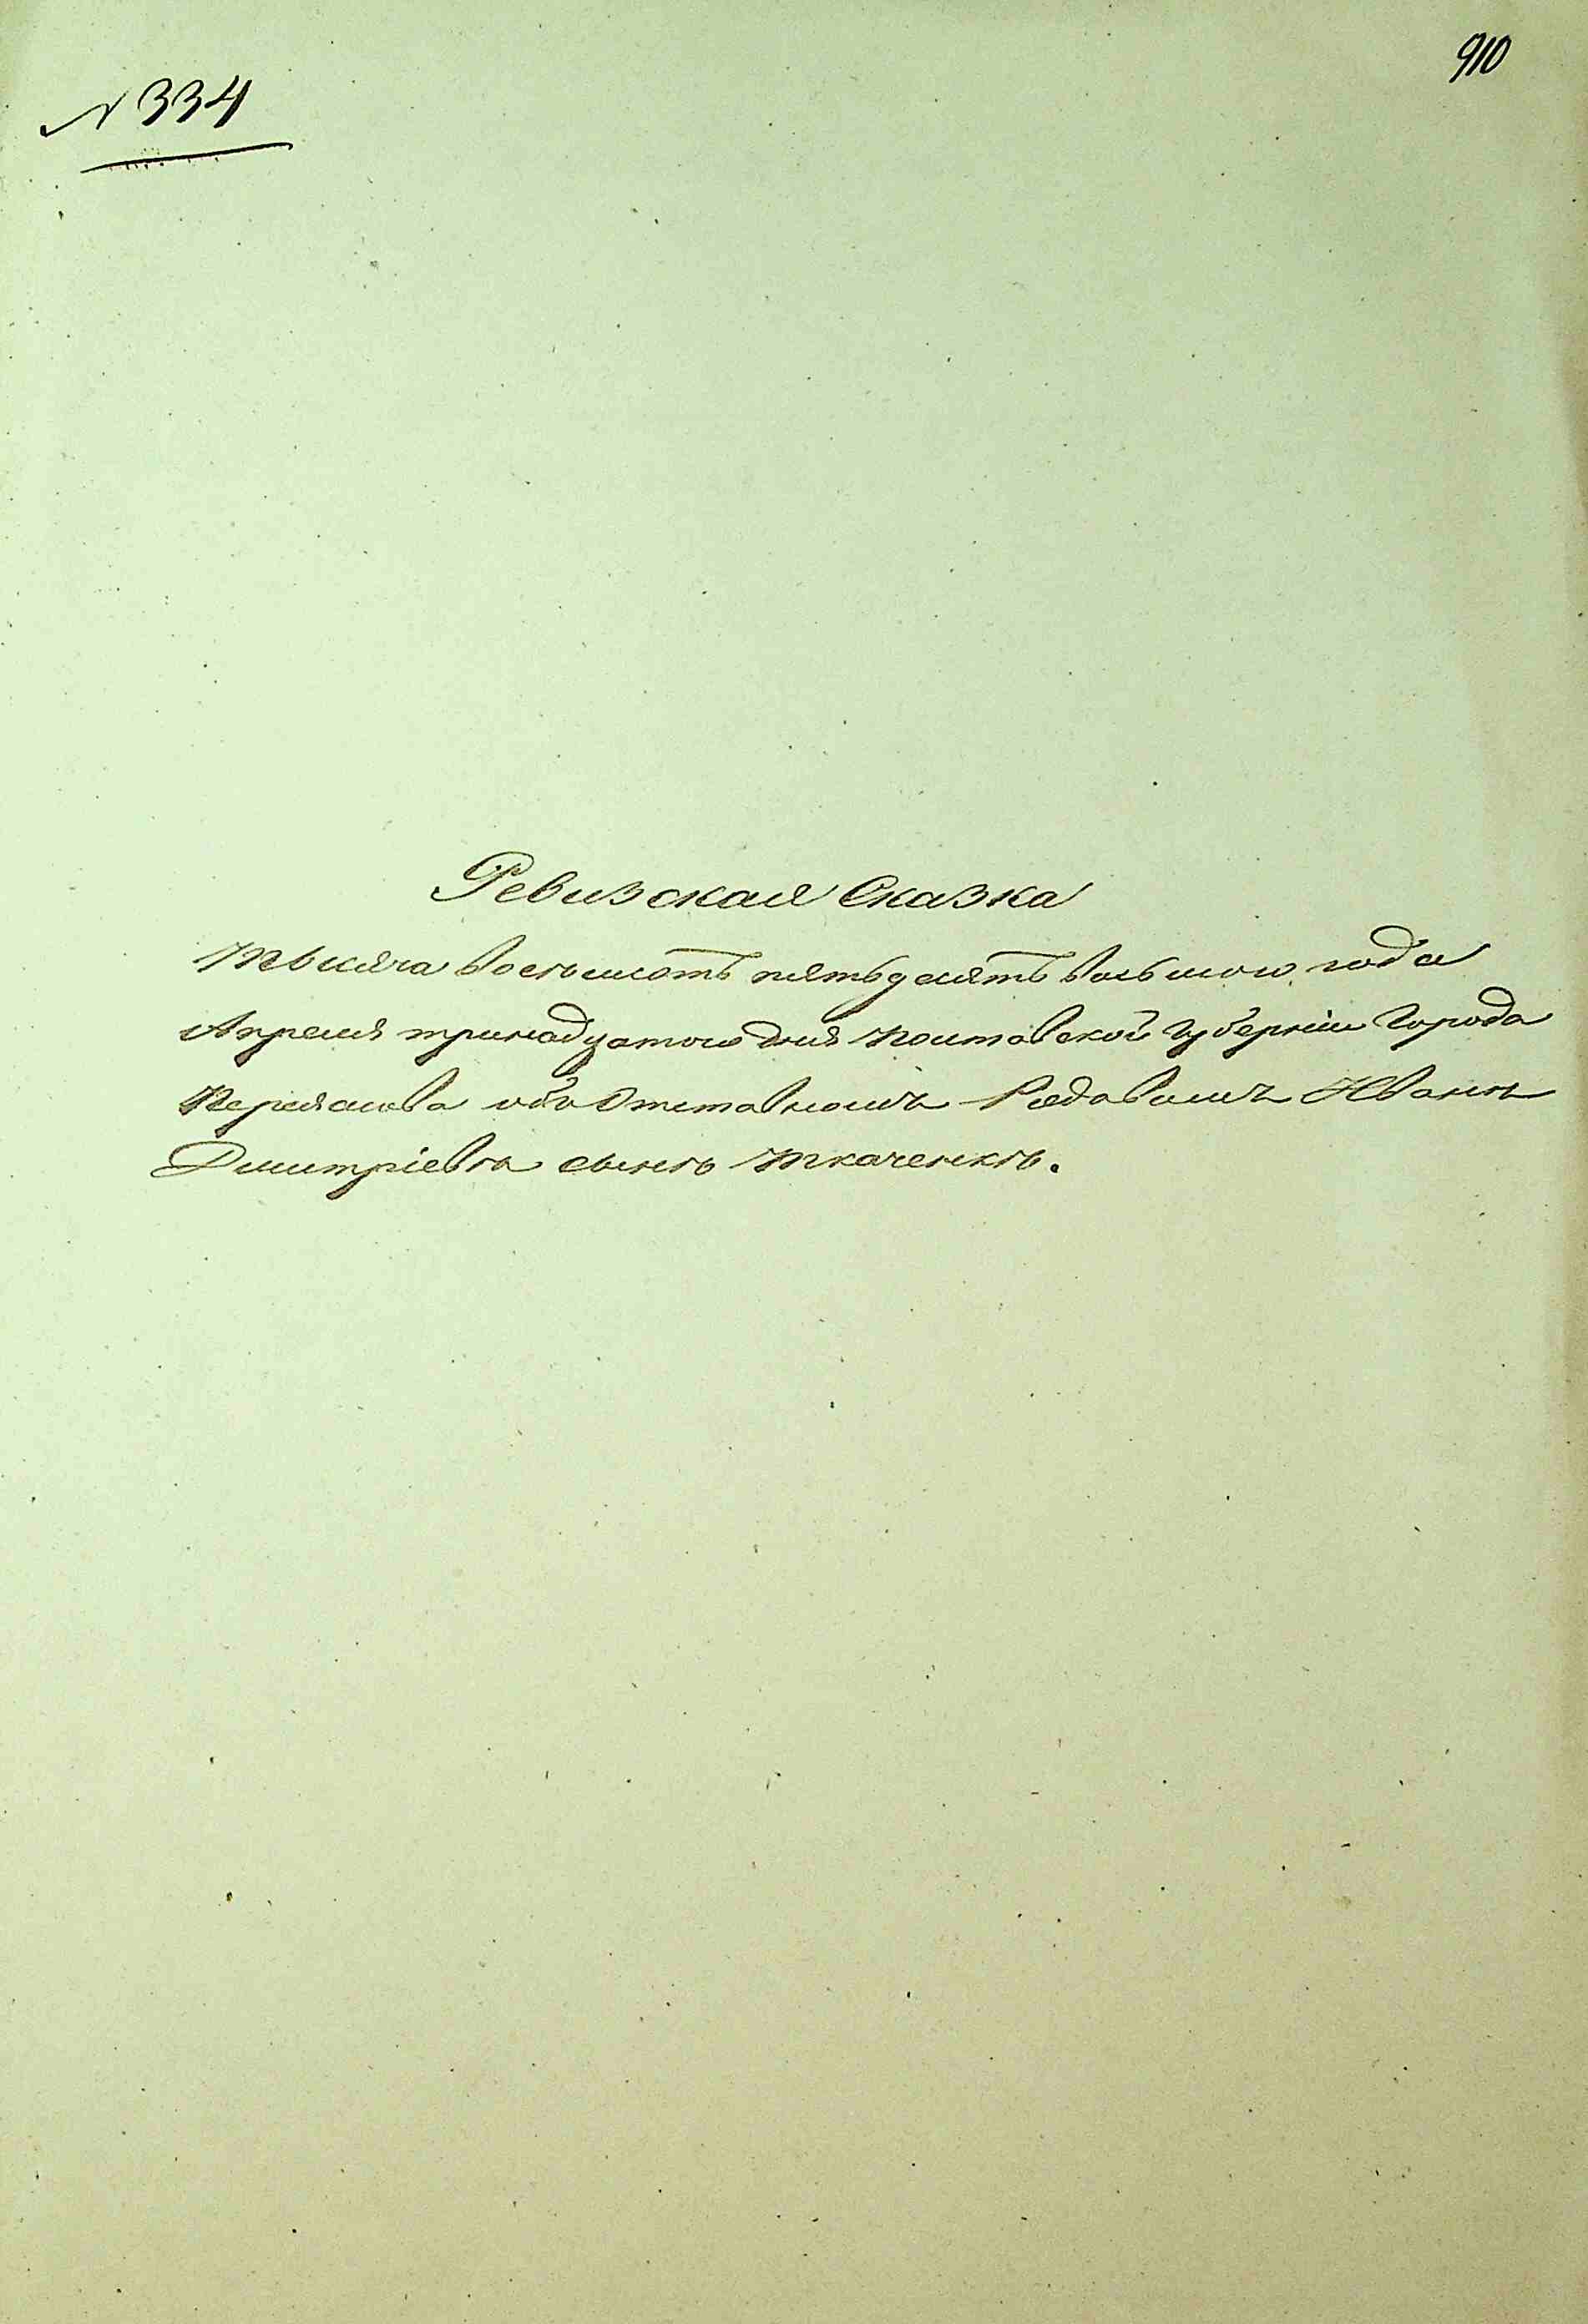 910
№ 334
Ревизская Сказка
Тысяча восемьсотъ пятьдесятъ восьмого года
Апреля тринадцатого дня Полтавской Губерніи Города
Переяслова объ Отставномъ Рядовомъ Иване
Дмитріевѣ сынѣ Ткаченкѣ.